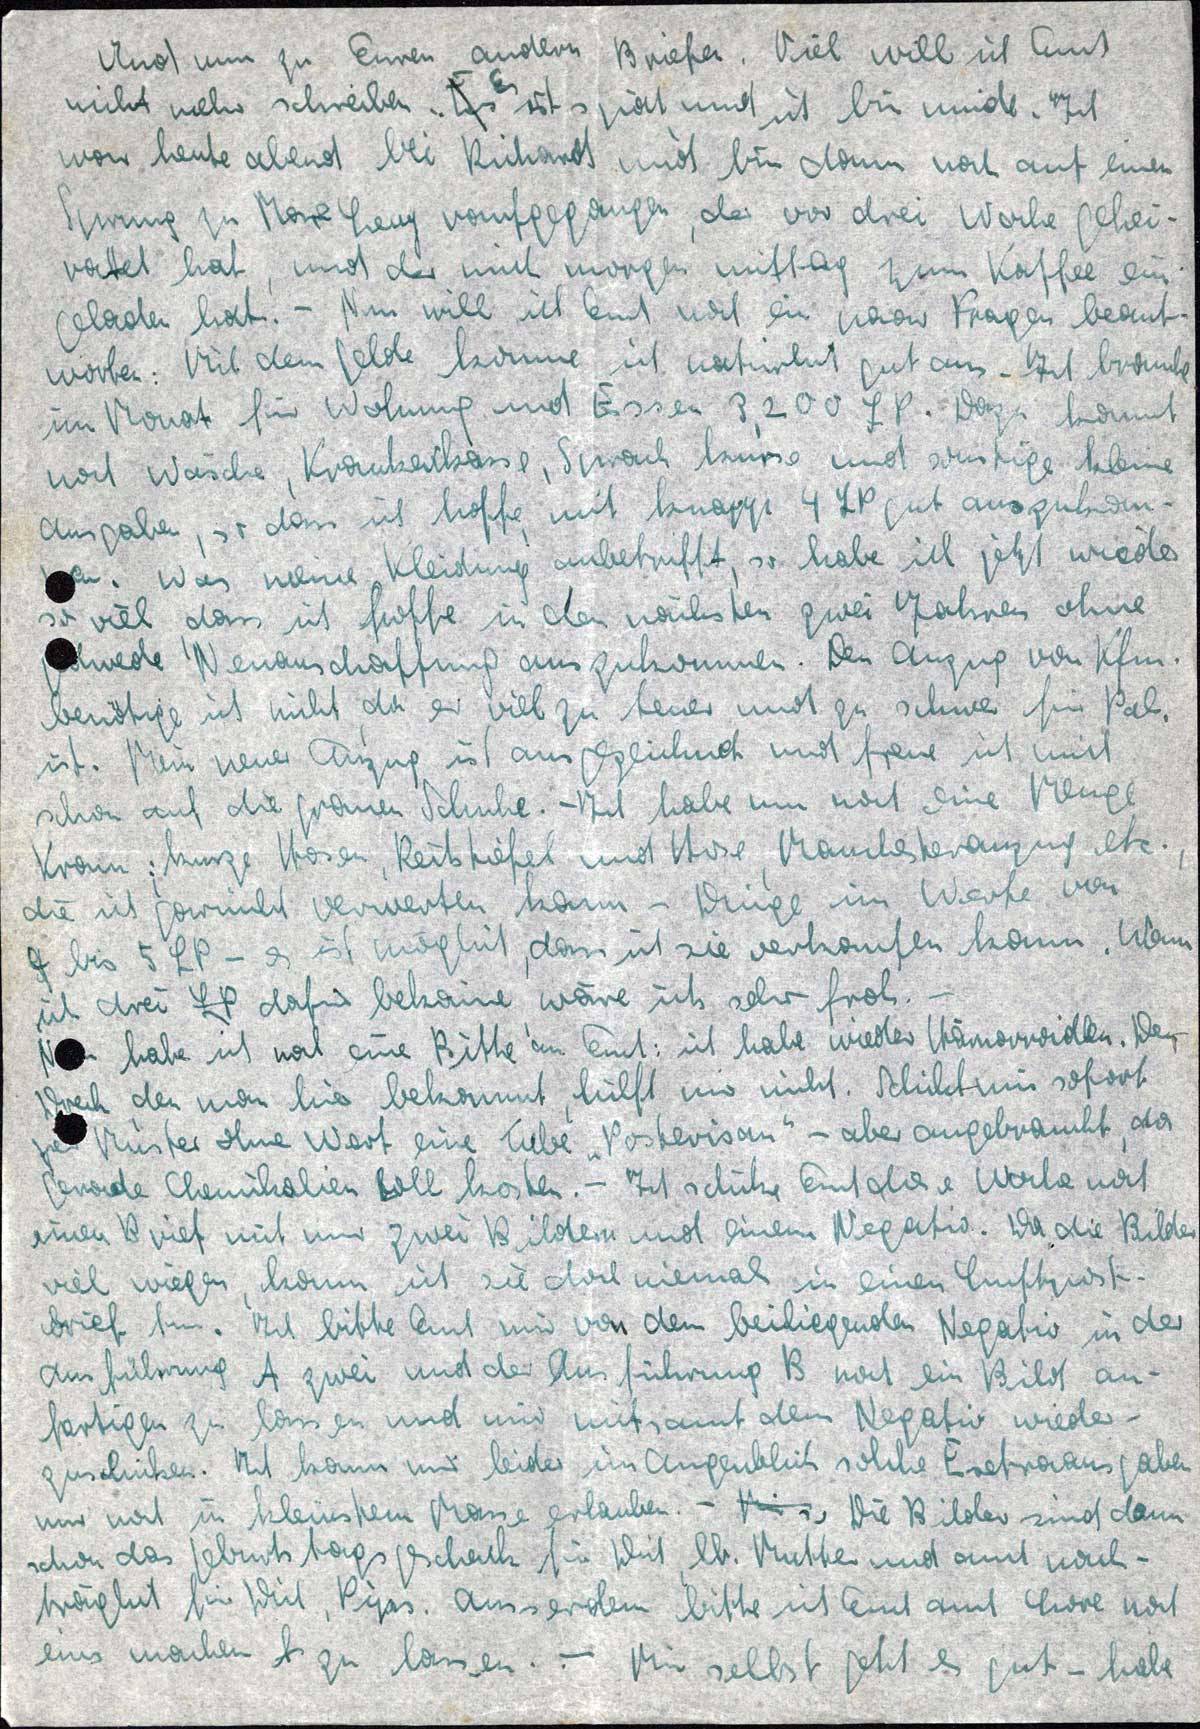 Und nun zu Euren andern Briefen. Viel will ich Euch
nicht mehr schreiben. Es ist spät und ich bin müde. Ich
war heute abend bei Richard und bin dann noch auf einen
Sprung zu Max raufgegangen, der vor drei Woche gehei-
ratet hat, und der mich morgen mittag zum Kaffee ein-
geladen hat. – Nun will ich Euch noch ein paar Fragen beant-
worten: Mit dem Gelde komme ich natürlich gut aus – Ich brauche
im Monat für Wohnung und Essen 3,200 LP. Dazu kommt
noch Wäsche, Krankenkasse, Sprachkurse und sonstige kleine
Ausgaben, so dass ich hoffe mit knapp 4 LP gut auszukom-
men. Was meine Kleidung anbetrifft, so habe ich jetzt wieder
so viel dass ich hoffe in den nächsten zwei Jahren ohne
jedwede Neuanschaffung auszukommen. Den Anzug von Kfm.
benötige ich nicht, da er viel zu teuer und zu schwer für Pal.
ist. Mein neuer Anzug ist ausgezeichnet und freue ich mich
schon auf die grauen Schuhe. – Ich habe nun noch eine Menge
Kram: kurze Hosen, Reitstiefel und Hose, Manchesteranzug etc.,
die ich garnicht verwerten kann – Dinge im Werte von
4 bis 5 LP – es ist möglich, dass ich sie verkaufen kann. Wenn
ich drei LP dafür bekäme wäre ich sehr froh. –
Nun habe ich noch eine Bitte an Euch: ich habe wieder Hämorroiden. Der
Dreck den man hier bekommt, hilft mir nicht. Schickt mir sofort
per Muster ohne Wert eine Tube „Posterisan“ – aber angebraucht, da
gerade Chemikalien Zoll kosten. – Ich schicke Euch diese Woche noch
einen Brief mit nur zwei Bildern und einem Negativ. Da die Bilder
viel wiegen, kann ich sie doch niemal in einen Luftpost-
brief tun. Ich bitte Euch mir von dem beiliegenden Negativ in der
Ausführung A zwei und der Ausführung B noch ein Bild an-
fertigen zu lassen und mir mitsamt dem Negativ wieder-
zuschicken. Ich kann mir leider im Augenblick solche Extraausgaben
nur noch in kleinstem Masse erlauben. – Die Bilder sind dann
schon das Geburtstagsgeschenk für Dich, lb. Mutter und auch nach-
träglich für Dich, Papa. Ausserdem bitte ich Euch auch Lore noch
eins machen zu lassen. – Mir selbst geht es gut – habe